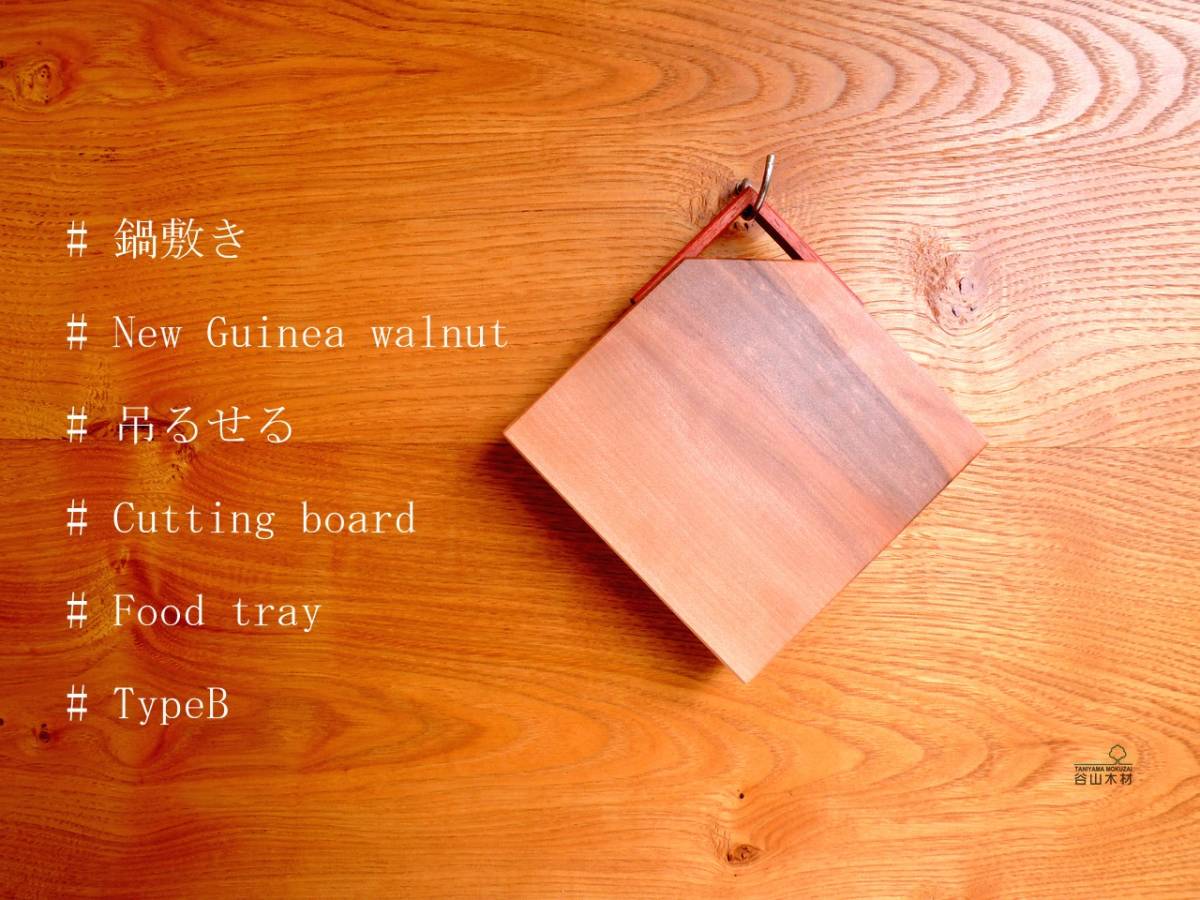 # 鍋敷き
# New Guinea walnut
# 吊るせる
# Cutting board
# Food tray
# TypeB
TANIYAMA MOKUZAI
谷山木材